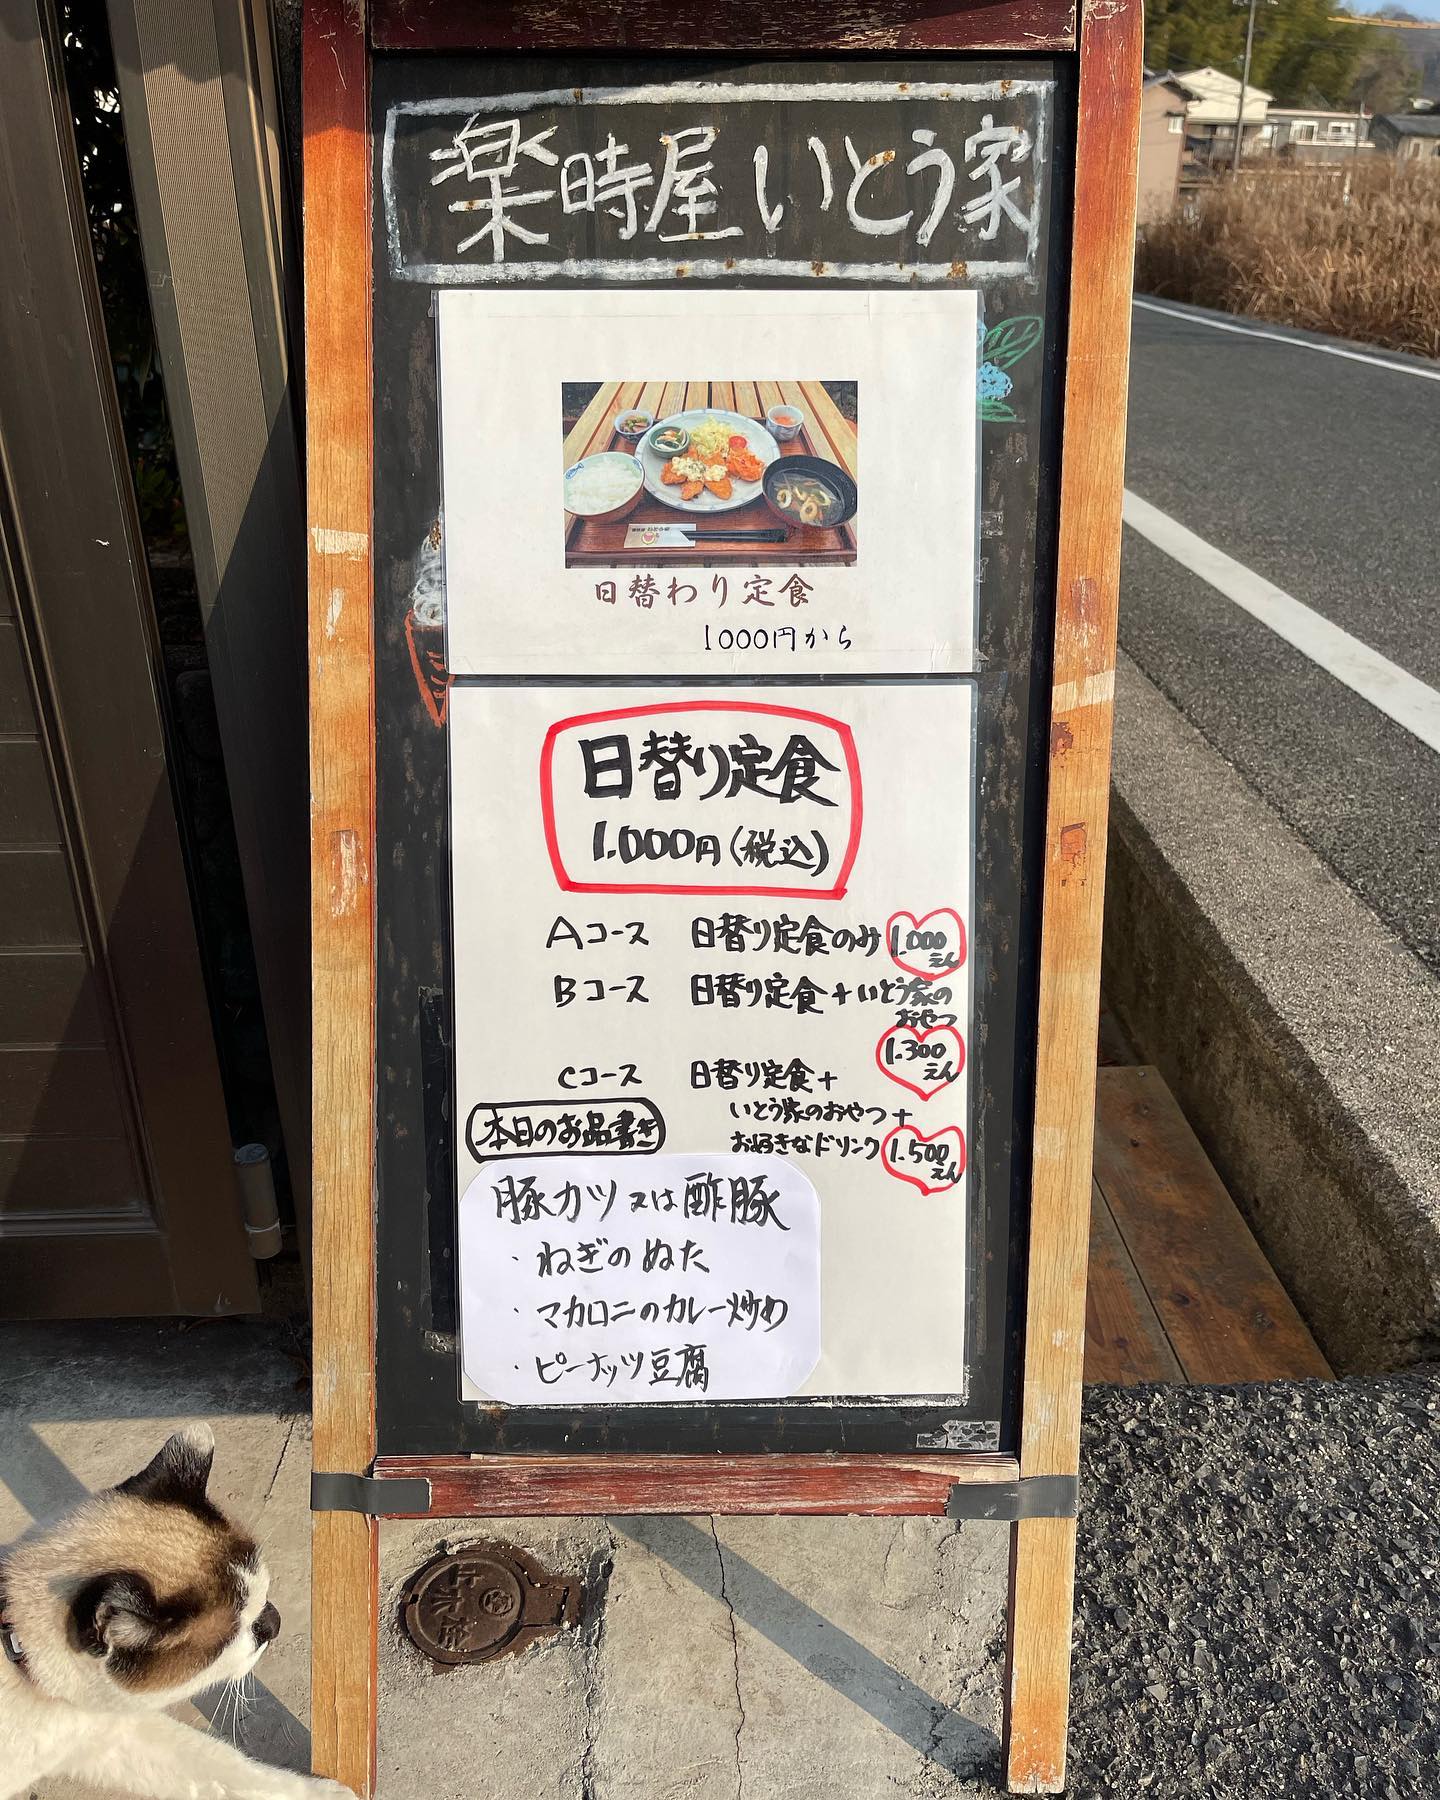 楽時屋いとう家
日替わり定食
1000円から
日替り定食
1.000円(税込)
Aコース 日替り定食のみ 1.000えん
Bコース 日替り定食+いとう家の
おやつ
1.300えん
Cコース 日替り定食+
いとう家のおやつ+
お好きなドリンク 1.500えん
本日のお品書き
豚カツ又は酢豚
・ねぎのぬた
・マカロニのカレー炒め
・ピーナッツ豆腐
止水栓